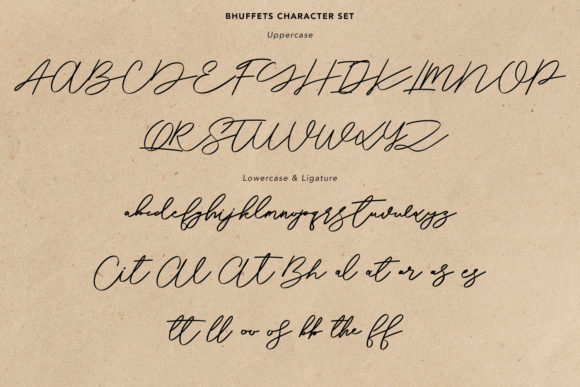 BHUFFETS CHARACTER SET
Uppercase
AABCDEFGHIJKLMNOP
QRSTUVWXYZ
Lowercase & Ligature
abcdefghijklmnopqrstuvwxyz
Cit Al At Bh al at ar as es
tt ll of the ff